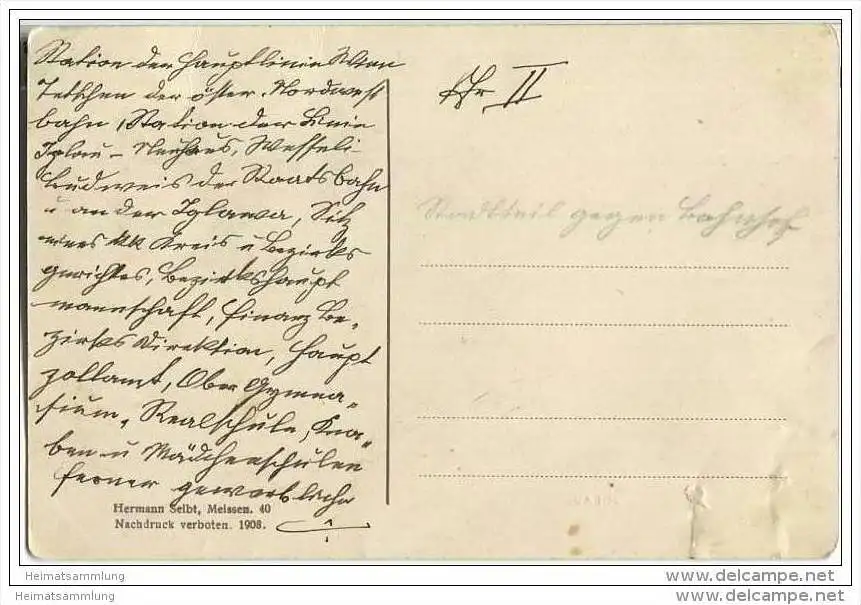 Station der Hauptlinie Wien
Tetschen der öster. Nordwest
bahn, Station der Linie
Iglau - Neuhaus, Wesseli-
Ludweis der Staatsbahn
u an der Iglawa, Sitz
eines kk Kreis u Bezirks
gerichtes, Bezirkshaupt
mannschaft, Finanz Be-
zirks Direktion, Haupt
zollamt, Ober Gymna-
sium, Realschule, Kna-
ben u Mädchenschulen
ferner gewerbliche
Hermann Seibt, Meissen. 40
Nachdruck verboten. 1908.
II
Stadtteil gegen Bahnhof
Heimatsammlung
Heimatsammlung
www.delcampe.net
www.delcampe.net